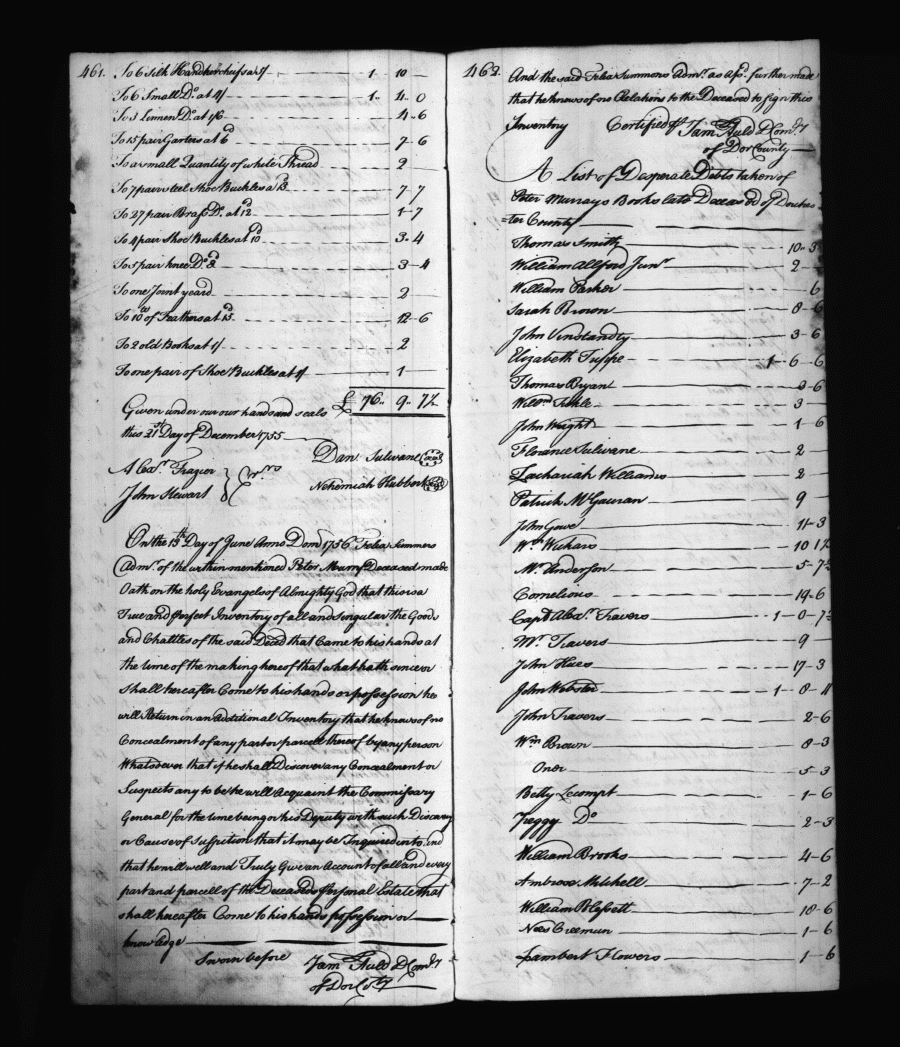 461.
To 6 Silk Handkercheifs a 5/ 1 „ 10 —
To 6 Small Do. at 4/ 1 „ 4 „ 0
To 3 Linnen Do. at 1/6 4 - 6
To 15 pair Garters at 6d 7 - 6
To a small Quantity of white Thread 2
To 7 pair steel Shoe Buckles a 13d 7 - 7
To 27 pair Brass Do. at 12d 1 - 7
To 4 pair Shoe Buckles at 10d 3 - 4
To 5 pair knee Do. 8d 3 - 4
To one Joint yeard 2
To 10lb of Feathers at 15d 12 - 6
To 2 old Books at 1/ 2
To one pair of Shoe Buckles at 1/ 1
£ 76 „ 9 „ 7½
Given under our our hands and seals
this 31st Day of December 1755
Dan Sulivane (seal)
Nehemiah Hubbert (seal)
Alexr. Frazier
John Stewart
On the 15th Day of June Anno Dom 1756 Summers
Admr. of the within mentioned Peter Murry Deceased made
Oath on the holy Evangels of Almighty God that this is a
True and perfect Inventory of all and singular the Goods
and Chattles of the said Decd that Came to his hands at
the time of the making hereof that what hath since or
shall hereafter Come to his hands or possession he
will Return in an additional Inventory that he knows of no
Concealment of any part or parcell thereof by any person
Whatsoever that if he shall Discover any Concealment or
Suspects any to be he will acquaint the Commissary
General for the time being or his Deputy with such Discovery
or Cause of Suspition that it may be Inquired into and
that he will well and Truly Give an Account of all and every
part and parcell of the Deceaseds personal Estate that
shall hereafter Come to his hands possession or
knowledge
Sworn before Jam Auld D Comry
of Dor Coty
462.
And the said Summons Admr. as afsd. further made
that he knows of no Relations to the Deceased to sign this
Inventory Certified pr Jam Auld D Comry
of Dor County
A List of Desperate Debts taken of
Peter Murrays Books late Deceased of Dorches
=ter County
Thomas Smith 10 „ 3
William Allford Junr 2
William Parker 6
Sarah Brown 8 - 6
John Vinstandty 3 - 6
Elizabeth Tuppe 1 - 6 - 6
Thomas Bryan 3 - 6
Willm Tickle 3
John Wright 1 - 6
Florance Sulivane 2
Zachariah Williams 2
Patrick McGauran 9
John Gowe 11 - 3
Wm Wickars 10 1½
Mr Anderson 5 - 7½
Cornelious 19 - 6
Capt Alexr. Travers 1 - 0 - 7½
Mr. Travers 9
John Hues 17 - 3
John Webster 1 - 8 - 11
John Travers 2 - 6
Wm Brown 8 - 3
Oner 5 - 3
Betty Lecompt 1 - 6
Preggy Do 2 - 3
William Brooks 4 - 6
Ambrose Mitchell 7 - 2
William Blessett 18 - 6
Noes Creeman 1 - 6
Lambert Flowers 1 - 6